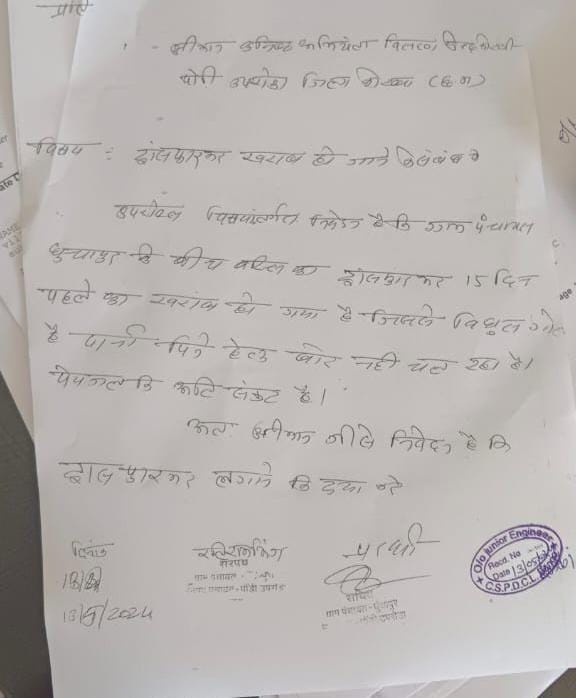 प्रति
श्रीमान कनिष्ठ अभियंता वितरण
पोड़ी उपरोड़ा जिला कोरबा (छ.ग)
विषय : ट्रांसफारमर खराब हो जाने
उपरोक्त विषयांतर्गत निवेदन है कि ग्राम पंचायत
के बीच बस्ती का ट्रांसफारमर 15 दिन
पहले का खराब हो गया है जिससे विधुत
है पानी पिने हेतु बोर नही चल रहा है।
पेयजल कि अति संकट है।
अतः श्रीमान जी से निवेदन है कि
ट्रांसफारमर लगाने कि कृपा करे
दिनांक
13/5/2024
सरपंच
ग्राम पंचायत
प्रार्थी
सचिव
ग्राम पंचायत
O/o Junior Engineer
Recd. No
Date 13/05/
C.S.P.D.C.L